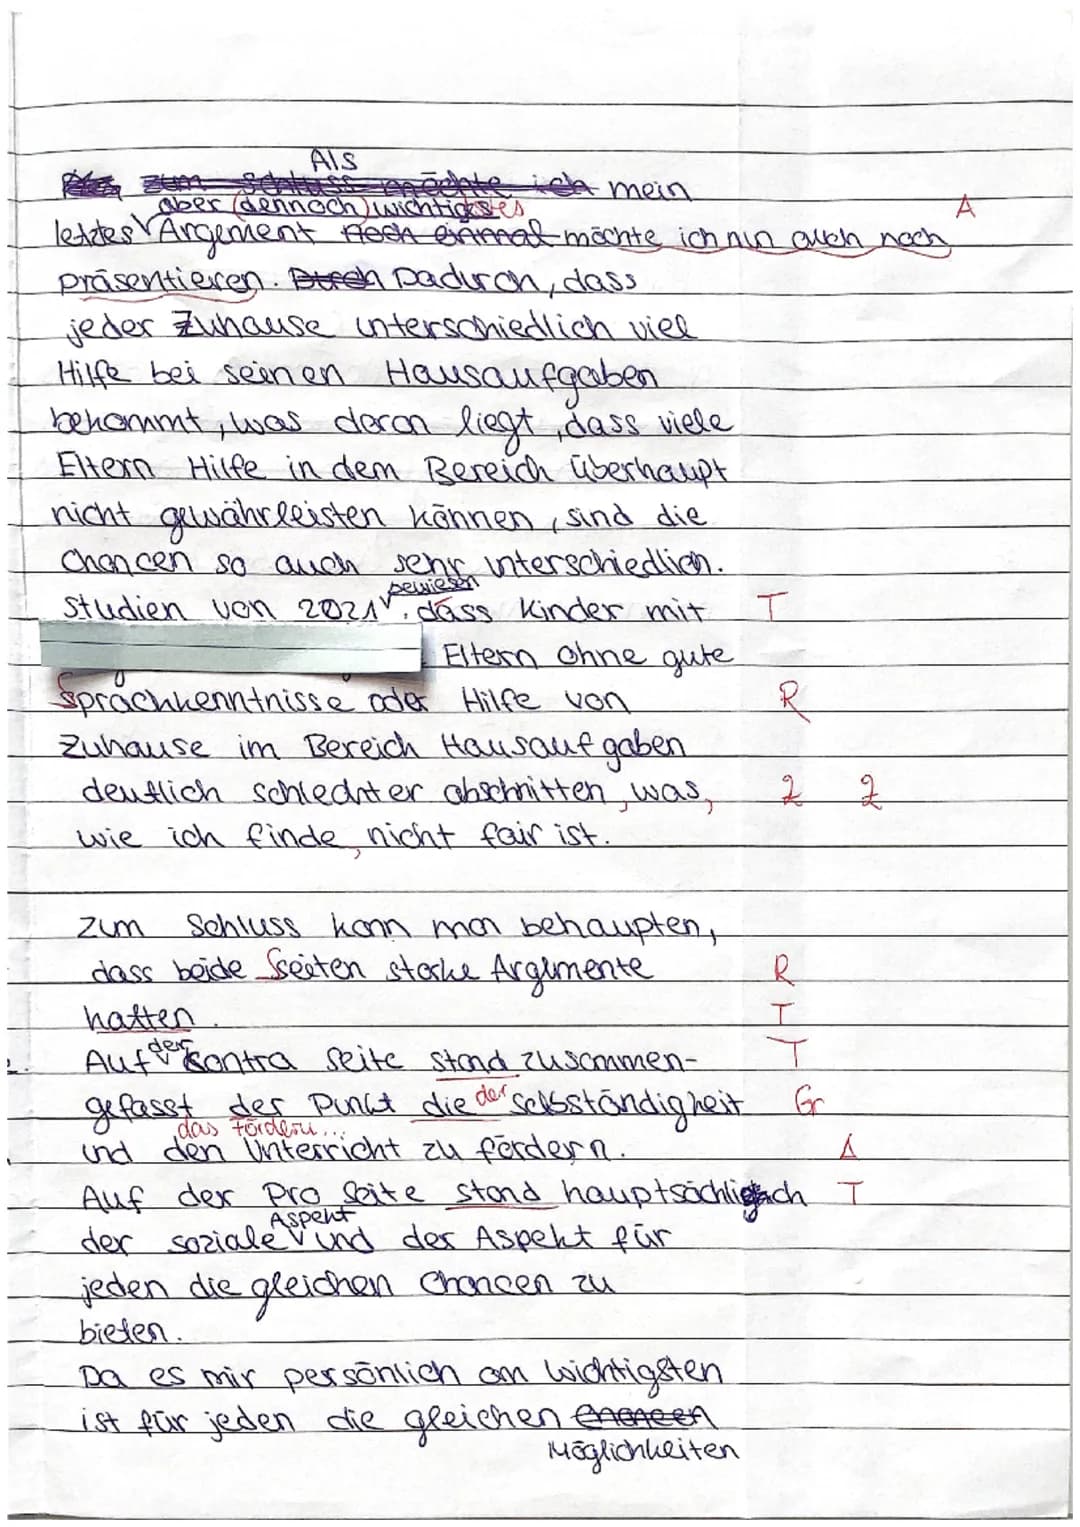 Als
zum Schluss möchte ich mein
aber (dennoch) wichtigstes
letztes Argement noch einmal möchte ich nun auch noch A
präsentieren. Durch Dadurch, dass
jeder Zuhause unterschiedlich viel
Hilfe bei seinen Hausaufgaben
bekommt, was daran liegt, dass viele
Eltern Hilfe in dem Bereich überhaupt
nicht gewährleisten können, sind die
Chancen so auch sehr unterschiedlich.
bewiesen
Studien von 2021, dass Kinder mit T
Eltern ohne gute
Sprachkenntnisse oder Hilfe von R
Zuhause im Bereich Hausaufgaben
deutlich schlechter abschnitten, was, Z Z
wie ich finde, nicht fair ist.
Zum Schluss kann man behaupten,
dass beide Seiten starke Argumente R
hatten. T
der
Auf Kontra Seite stand zusammen- T
gefasst der Punkt die der Selbständigkeit Gr
das Fördern...
und den Unterricht zu fördern. A
Auf der Pro Seite stand hauptsächlich T
Aspekt
der soziale und der Aspekt für
jeden die gleichen Chancen zu
bieten.
Da es mir persönlich am wichtigsten
ist für jeden die gleichen Chancen
Möglichkeiten